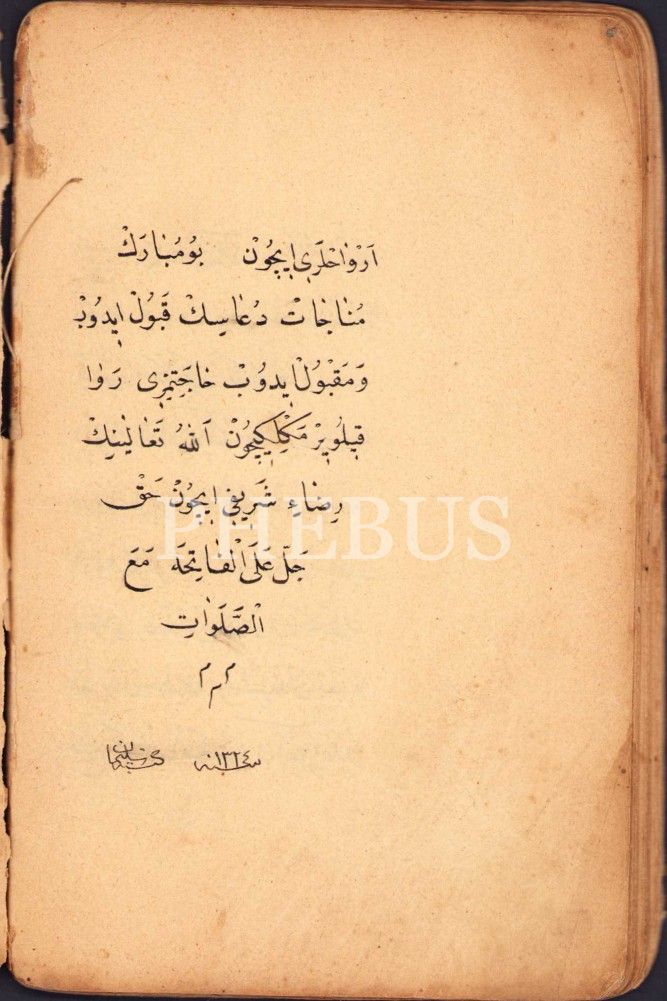 اَرْوٰاحْلَرٖی اِیچُونْ بُومُبٰارَكْ
مُنٰاجٰاتْ دُعٰاسِنْ قَبُولْ اِیدُوبْ
وَمَقْبُولْ اِیدُوبْ حٰاجَتِمِزٖی رَوٰا
اَللّٰهُ تَعٰالٰینِكْ
رِضٰاءِ شَرٖیفٖی اِیچُونْ حَقْ
جَلَّ عَلَی الْفٰاتِحَه مَعَ
الْصَّلَوٰاتِ
م م م
سنه ١٣٢٤
PHEBUS